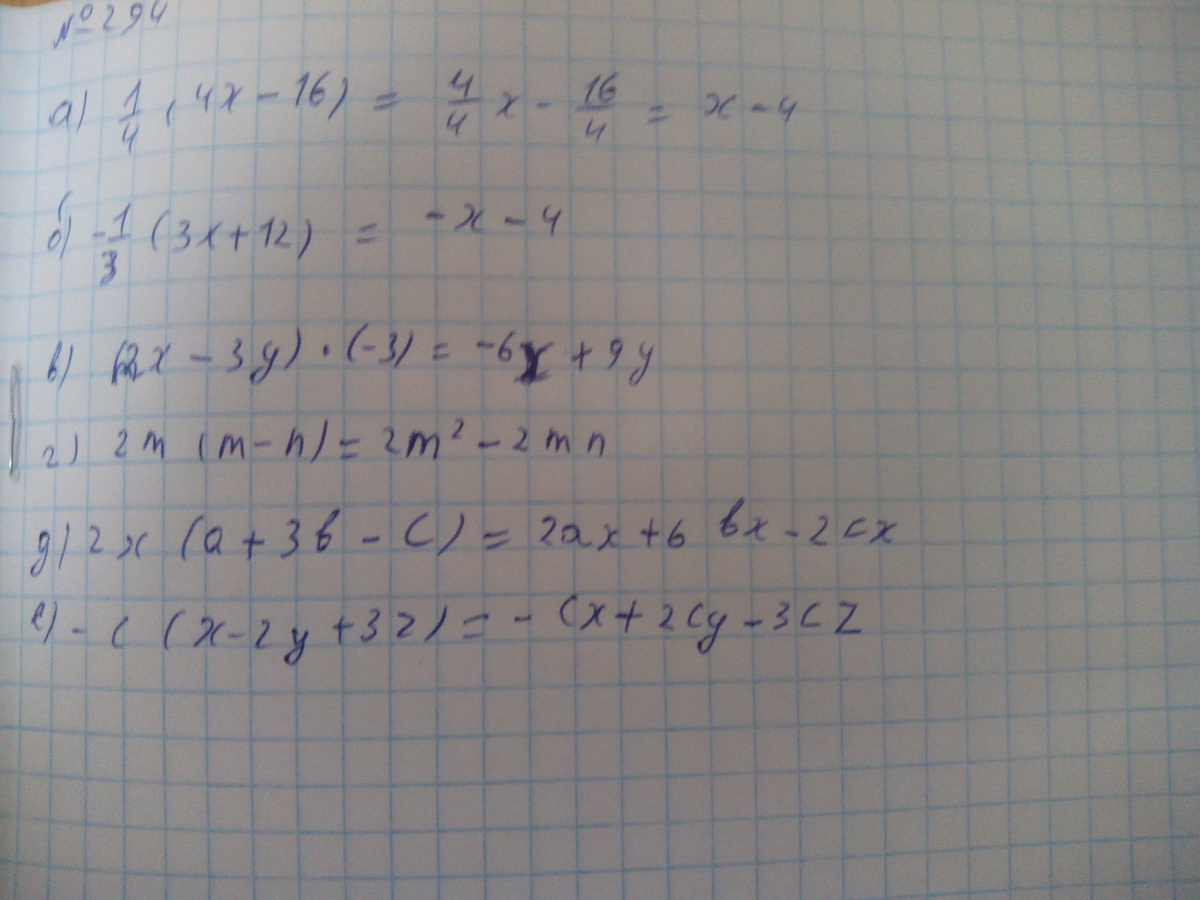 №294
а) 1/4 (4x - 16) = 4/4 x - 16/4 = x - 4
б) -1/3 (3x + 12) = -x - 4
в) (2x - 3y) · (-3) = -6x + 9y
г) 2m (m - n) = 2m² - 2mn
д) 2x (a + 3b - c) = 2ax + 6bx - 2cx
е) -c (x - 2y + 3z) = -cx + 2cy - 3cz